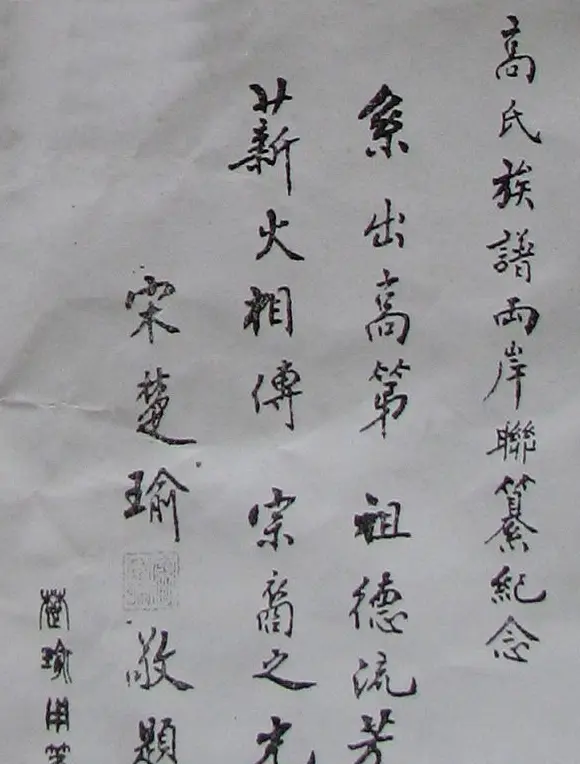 高氏族譜兩岸聯纂紀念
系出高第 祖德流芳
薪火相傳 宗裔之光
宋楚瑜 敬題
楚瑜用箋